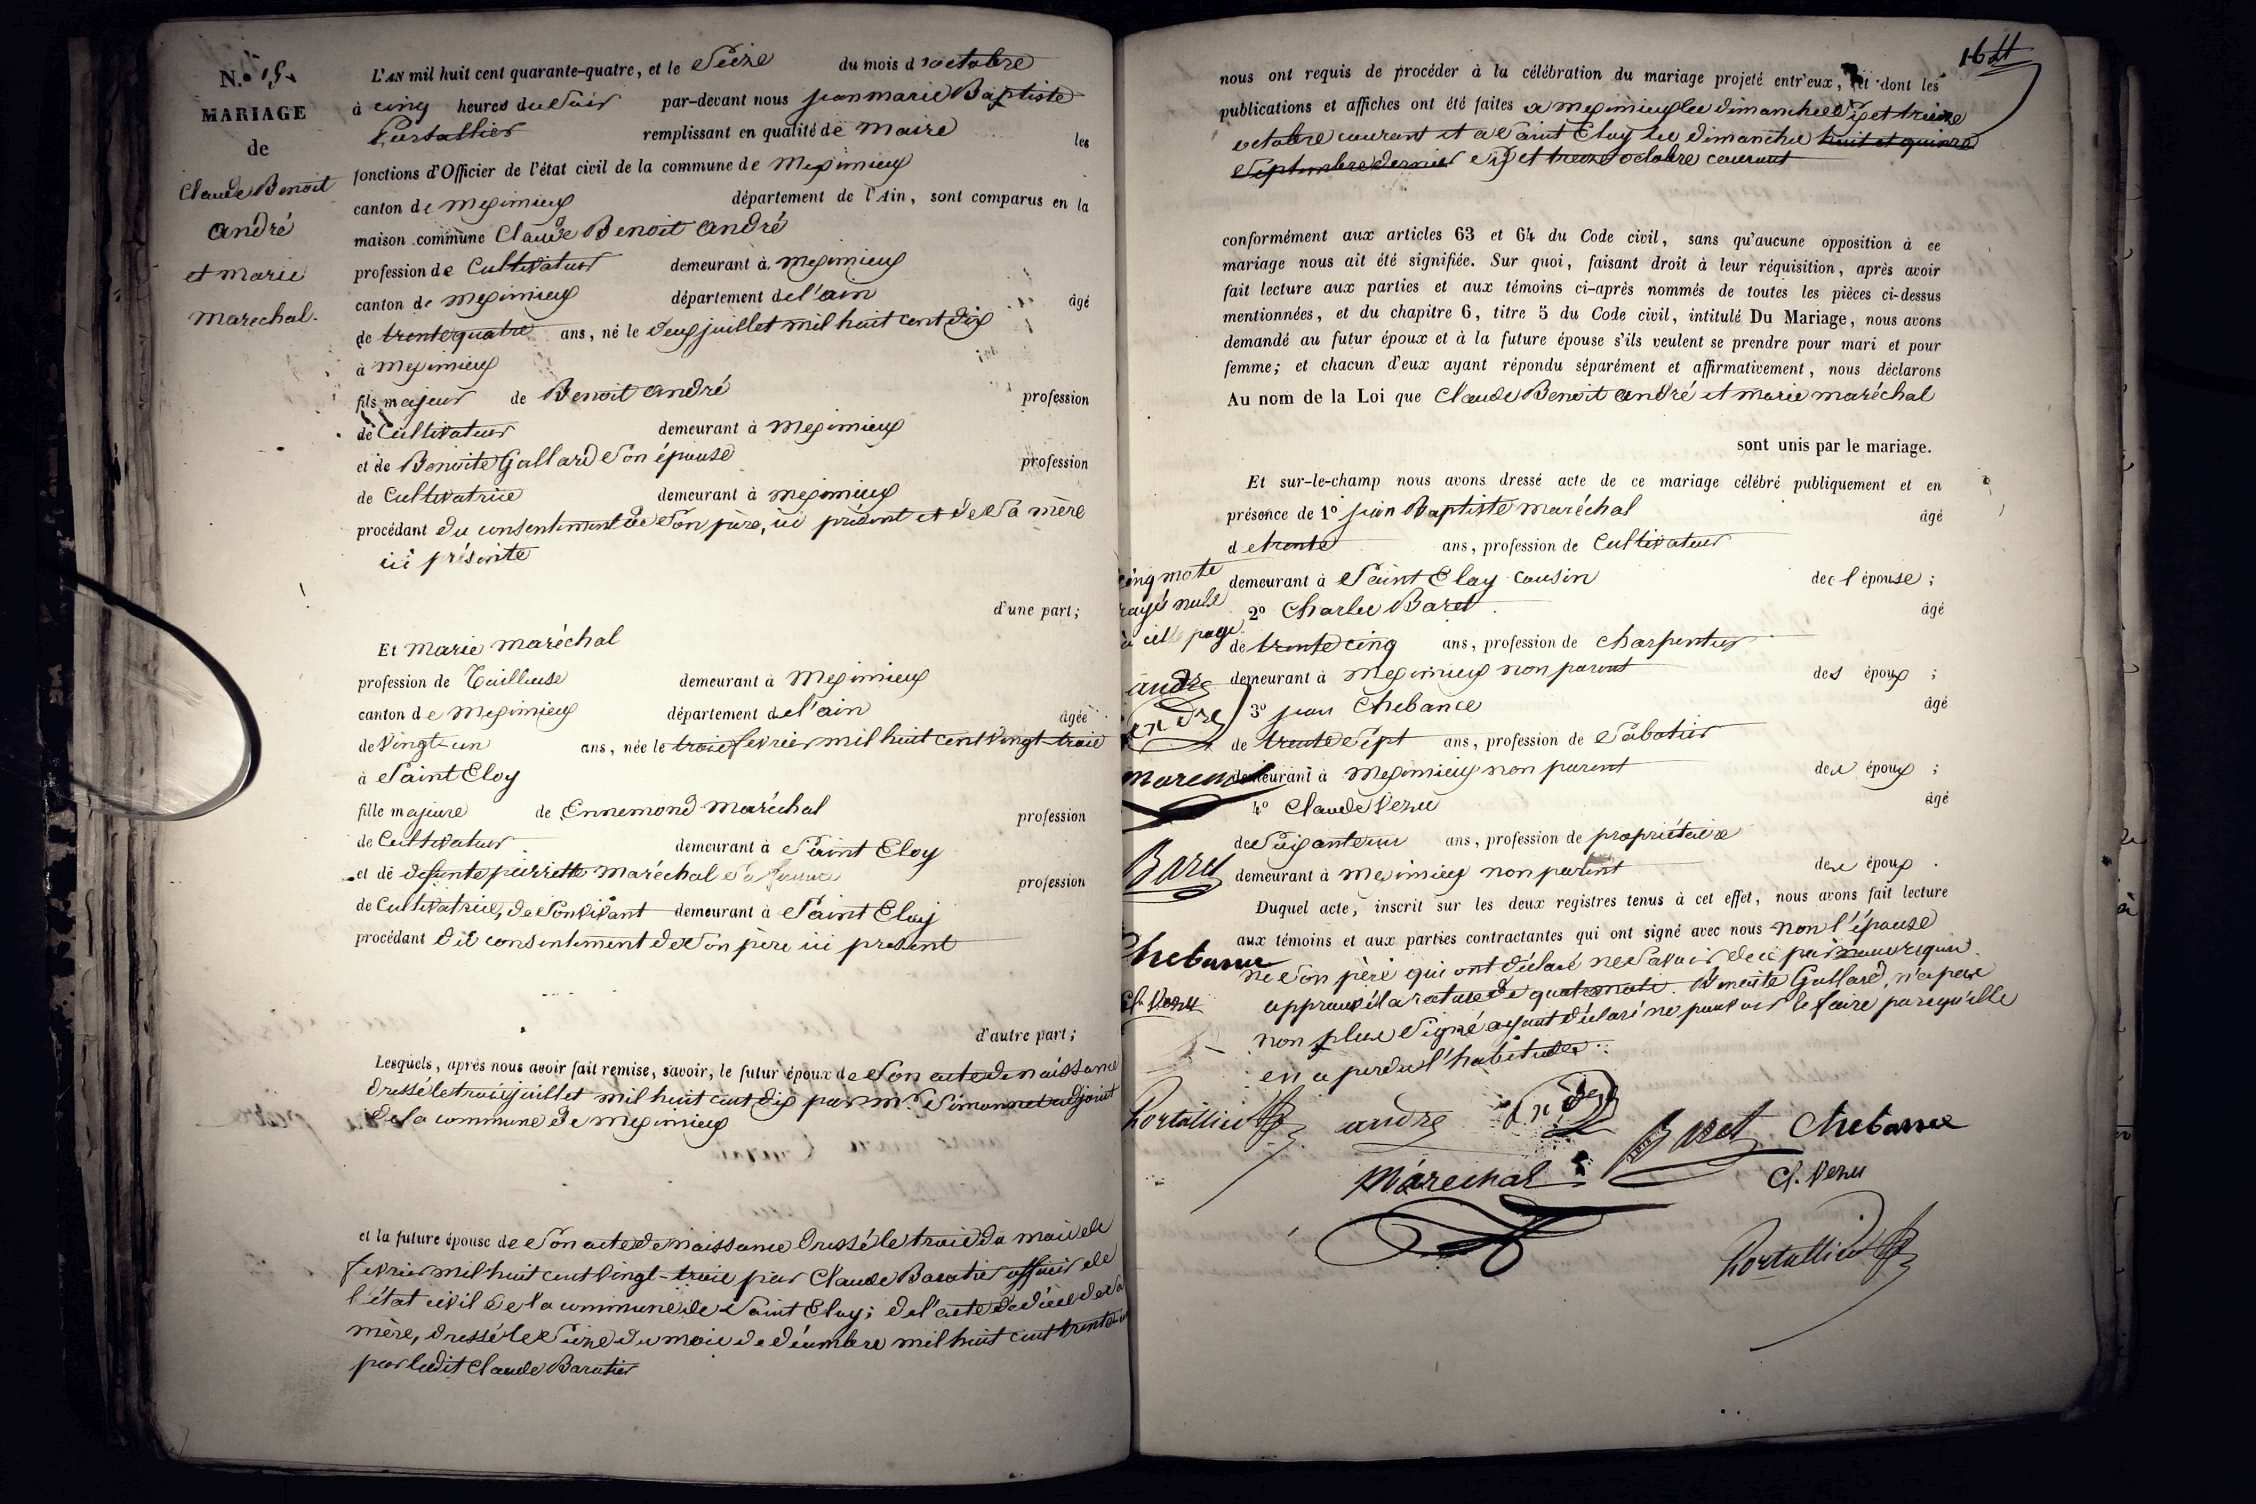 N.° 15.
MARIAGE
de
Claude Benoit
andré
et marie
marechal.
L'AN mil huit cent quarante-quatre, et le Seize du mois d'octobre
à cinq heures du soir par-devant nous jean marie Baptiste
Portallier remplissant en qualité de maire les
fonctions d'Officier de l'état civil de la commune de meximieux
canton de meximieux département de l'Ain, sont comparus en la
maison commune Claude Benoit andré
profession de Cultivateur demeurant à meximieux
canton de meximieux département de l'ain âgé
de trente quatre ans, né le deux juillet mil huit cent dix
à meximieux
fils majeur de Benoit andré profession
de Cultivateur demeurant à meximieux
et de Benoite Gallard son épouse profession
de Cultivatrice demeurant à meximieux
procédant du consentement de son père, ici présent et de sa mère
ici présente
d'une part;
Et marie maréchal
profession de Tailleuse demeurant à meximieux
canton de meximieux département de l'ain âgée
de vingt-un ans, née le trois fevrier mil huit cent vingt-trois
à Saint Eloy
fille majeure de Ennemond maréchal profession
de Cultivateur demeurant à Saint Eloy
et de defunte pierrette maréchal sa femme profession
de Cultivatrice, de son vivant demeurant à Saint Eloy
procédant du consentement de son père ici present
d'autre part;
Lesquels, après nous avoir fait remise, savoir, le futur époux de son acte de naissance
dressé le trois juillet mil huit cent dix par mr. Simonnet adjoint
de la commune de meximieux
et la future épouse de son acte de naissance dressé le trois du mois de
fevrier mil huit cent vingt-trois par Claude Baratier officier de
l'état civil de la commune de Saint Eloy; de l'acte de décès de sa
mère, dressé le Seize du mois de décembre mil huit cent trente-un
par ledit Claude Baratier
164
nous ont requis de procéder à la célébration du mariage projeté entr'eux, et dont les
publications et affiches ont été faites a meximieux les dimanches six et treize
octobre courant et a Saint Eloy les dimanches huit et quinze
Septembre dernier six et treize octobre courant
conformément aux articles 63 et 64 du Code civil, sans qu'aucune opposition à ce
mariage nous ait été signifiée. Sur quoi, faisant droit à leur réquisition, après avoir
fait lecture aux parties et aux témoins ci-après nommés de toutes les pièces ci-dessus
mentionnées, et du chapitre 6, titre 5 du Code civil, intitulé Du Mariage, nous avons
demandé au futur époux et à la future épouse s'ils veulent se prendre pour mari et pour
femme; et chacun d'eux ayant répondu séparément et affirmativement, nous déclarons
Au nom de la Loi que Claude Benoit andré et marie maréchal
sont unis par le mariage.
Et sur-le-champ nous avons dressé acte de ce mariage célébré publiquement et en
présence de 1° jean Baptiste maréchal âgé
de trente ans, profession de Cultivateur
demeurant à Saint Eloy cousin de l'épouse;
2° Charles Baret âgé
de trente cinq ans, profession de charpentier
demeurant à meximieux non parent des époux;
3° jean Chebance âgé
de trente Sept ans, profession de Sabotier
demeurant à meximieux non parent des époux;
4° Claude Venu âgé
de Soixante un ans, profession de propriétaire
demeurant à meximieux non parent des époux.
Duquel acte, inscrit sur les deux registres tenus à cet effet, nous avons fait lecture
aux témoins et aux parties contractantes qui ont signé avec nous non l'épouse
ne son père qui ont déclaré ne savoir de ce par nous requis.
approuvé la rature de quatre mots. Benoite Gallard, n'a pas
non plus signé ayant déclaré ne pouvoir le faire parcequ'elle
en a perdu l'habitude.
cinq mots
rayés nuls
à cette page
andre
andre
marechal
Baret
Chebance
Cl. Venu
Portallier andre andre
Baret Chebance
Marechal Cl. Venu
Portallier